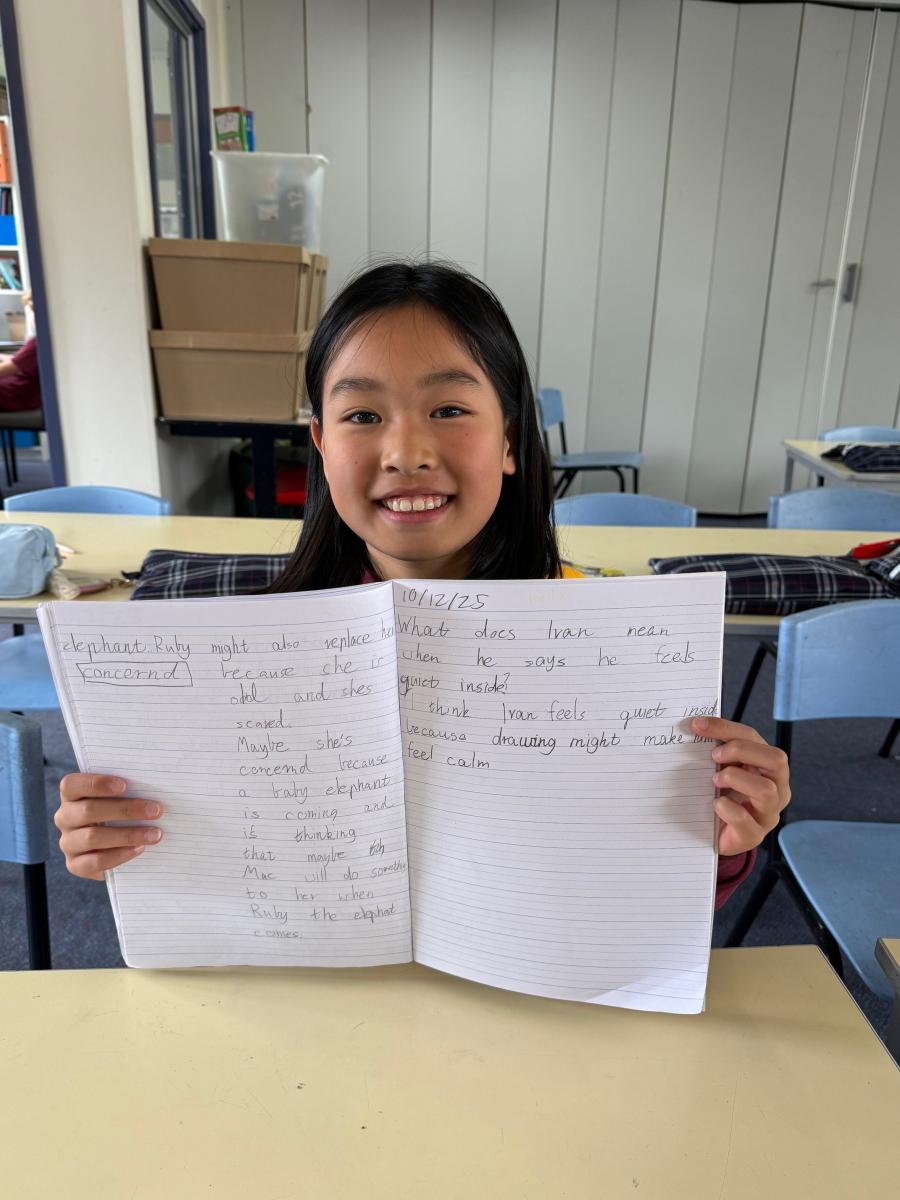 elephant. Ruby might also replace her
concernd because she is
odd and shes
scared.
Maybe she's
concernd because
a baby elephant
is coming and
is thinking
that maybe
Mac will do something
to her when
Ruby the elephant
comes.
10/12/25
What does Ivan mean
when he says he feels
quiet inside?
I think Ivan feels quiet inside
because drawing might make him
feel calm